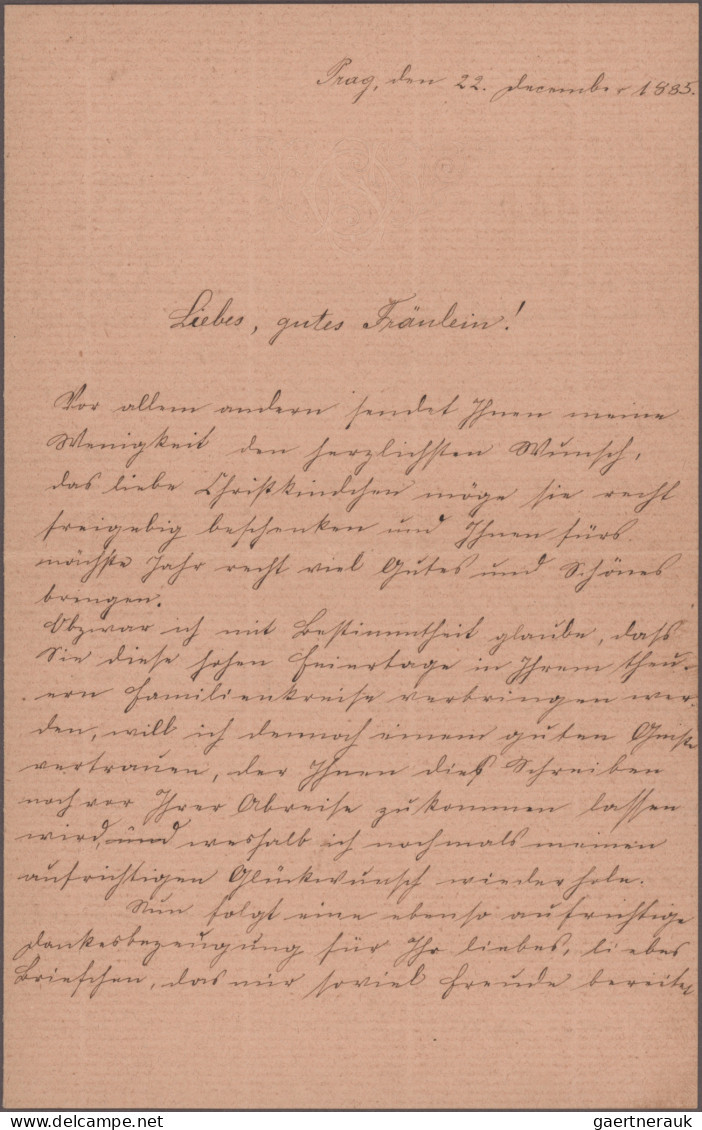 Prag, den 22. December 1885.
Liebes, gutes Fräulein!
Vor allem andern sendet Ihnen meine
Wenigkeit den herzlichsten Wunsch,
das liebe Christkindchen möge sie recht
freigebig beschenken und Ihnen fürs
nächste Jahr recht viel Gutes und Schönes
bringen.
Obzwar ich mit Bestimmtheit glaube, dass
Sie diese hohen Feiertage in Ihrem theu-
ern Familienkreise verbringen wer-
den, will ich dennoch einem guten Geiste
vertrauen, der Ihnen dies Schreiben
noch vor Ihrer Abreise zukommen lassen
wird, und weshalb ich nochmals meinen
aufrichtigen Glückwunsch wiederhole.
Nun folgt eine ebenso aufrichtige
Dankesbezeugung für Ihr liebes, liebes
Briefchen, das mir soviel Freude bereitet
delcampe.net
gaertnerauk